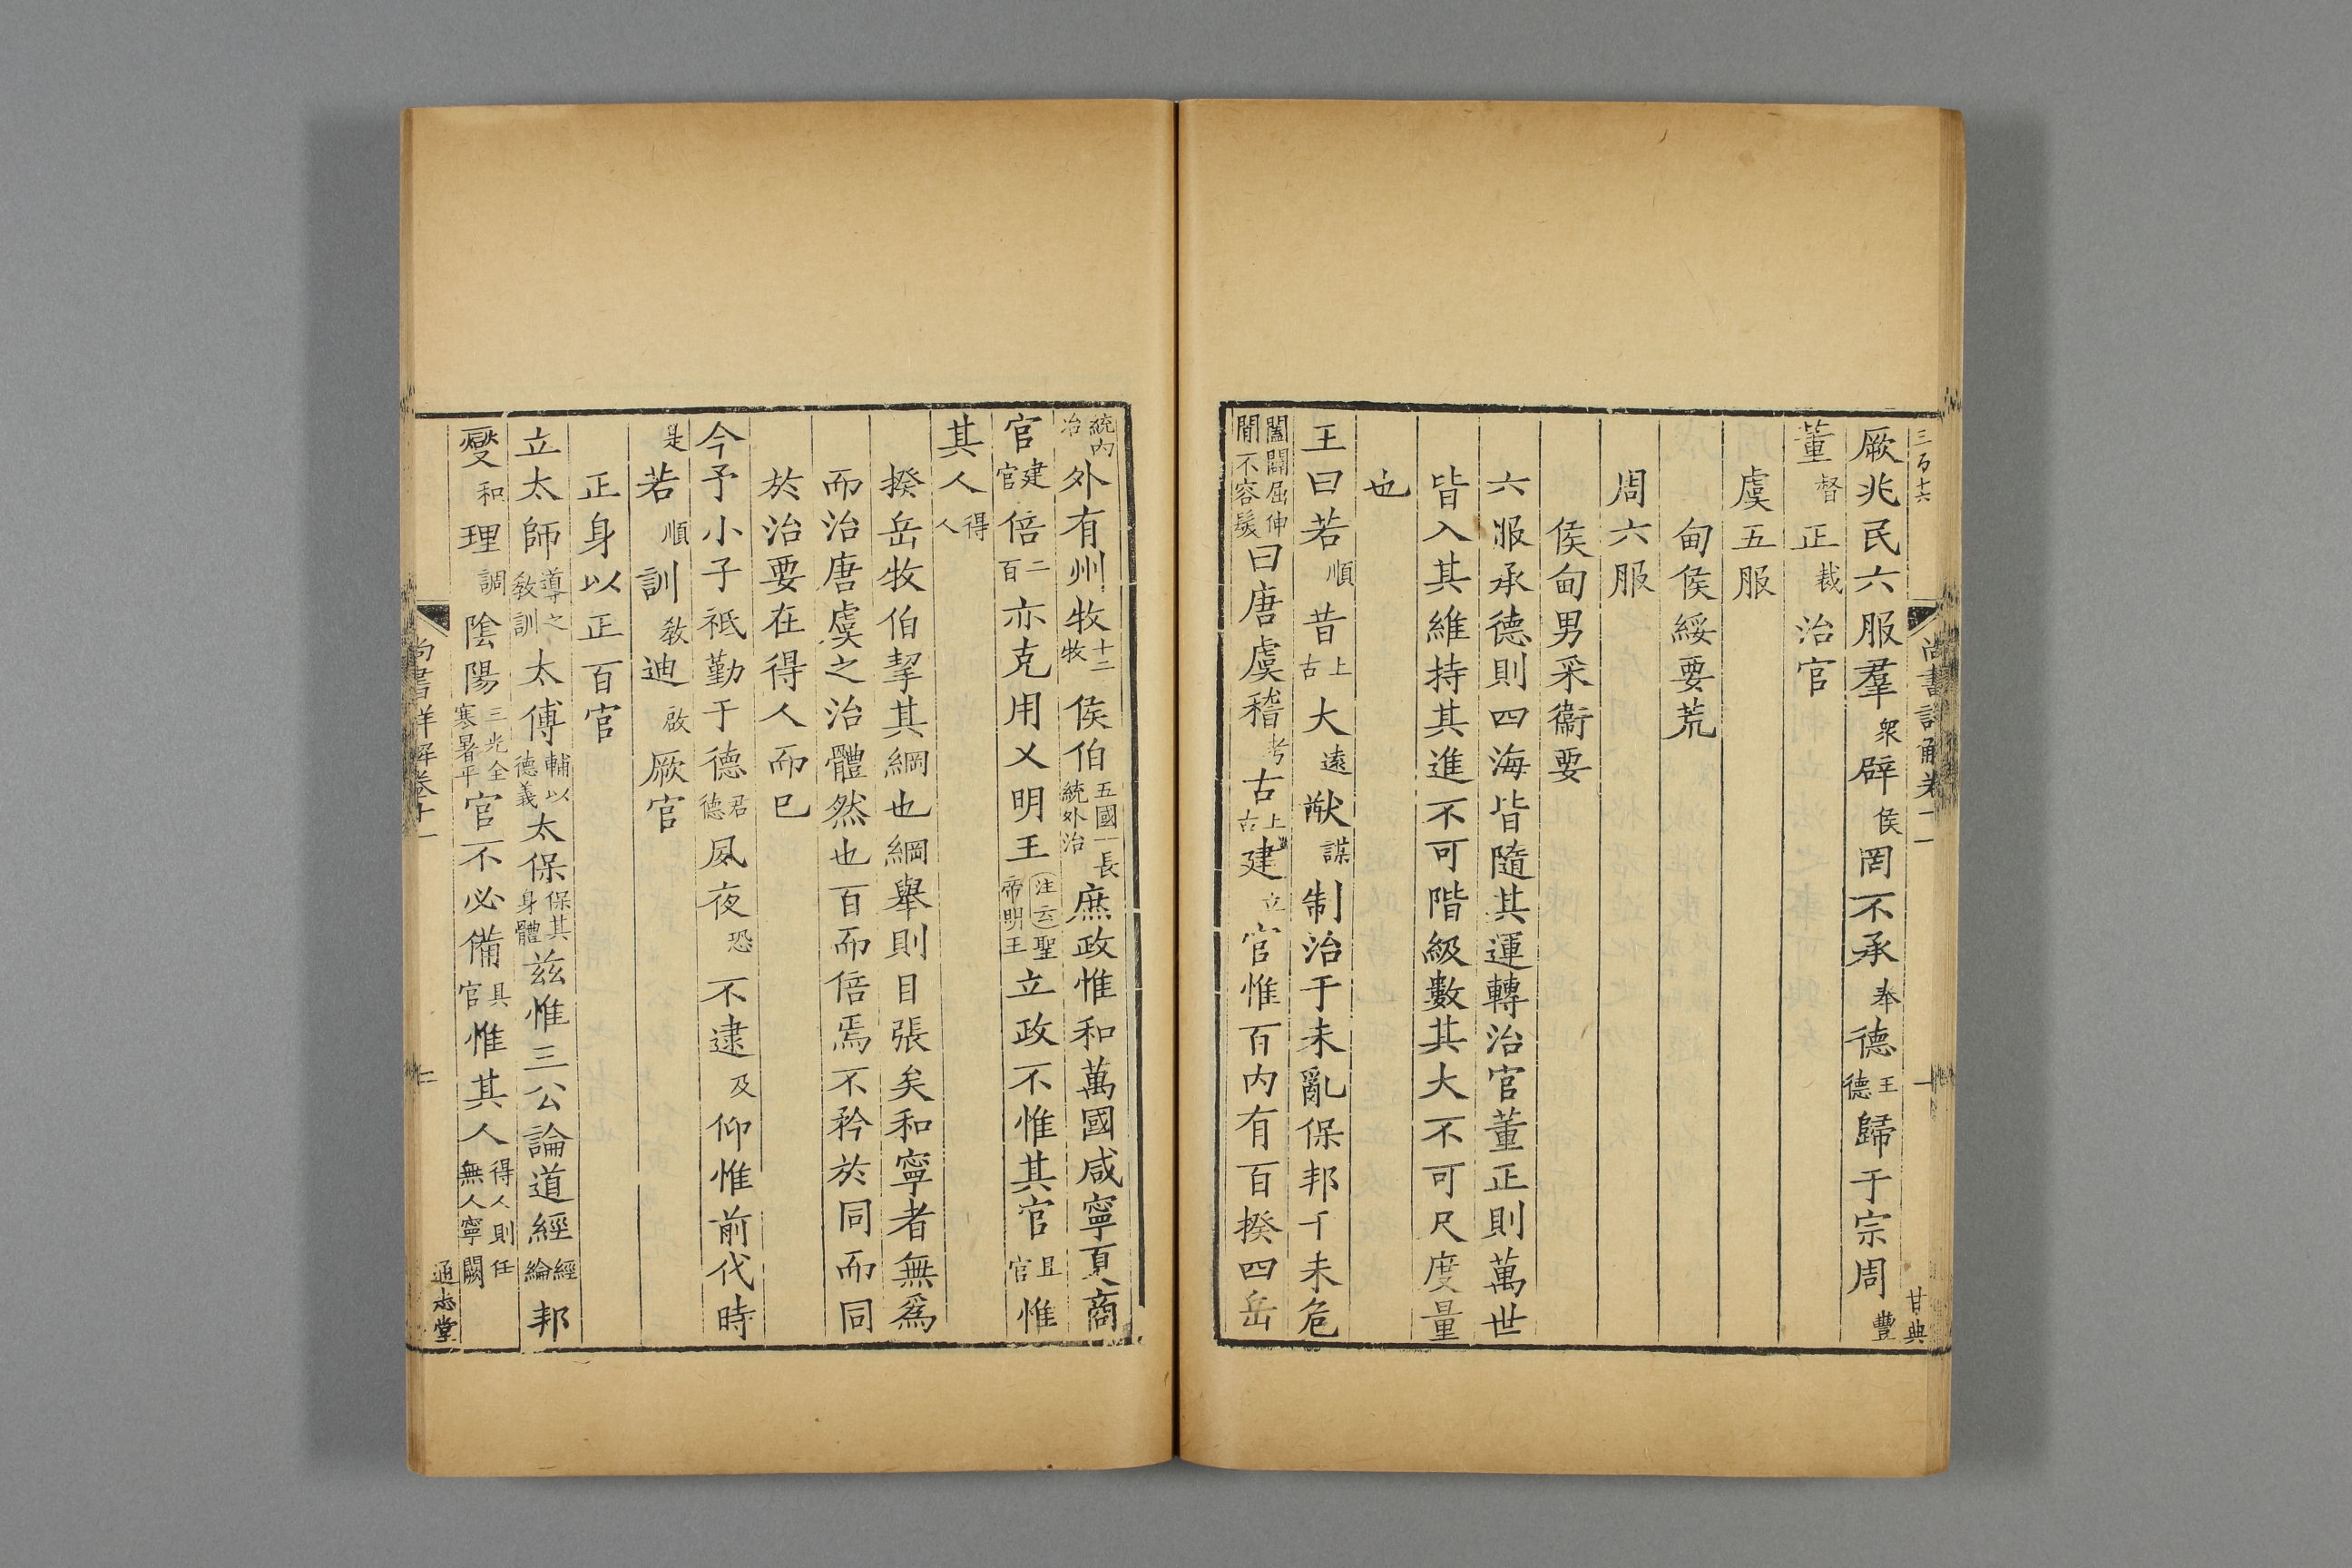 三百十六
尚書詳解卷十一 一 甘典
厥兆民六服羣衆辟侯罔不承奉德王德歸于宗周豐
董督正裁治官
虞五服
甸侯綏要荒
周六服
侯甸男采衞要
六服承德則四海皆隨其運轉治官董正則萬世
皆入其維持其進不可階級數其大不可尺度量
也
王曰若順昔上古大遠猷謀制治于未亂保邦于未危
闔闢屈伸閒不容髮曰唐虞稽考古上古建立官惟百内有百揆四岳
統内治外有州牧十二牧侯伯五國一長統外治庶政惟和萬國咸寧夏商
官建官倍二百亦克用乂明王注云聖帝明王立政不惟其官且官惟
其人得人
揆岳牧伯挈其綱也綱舉則目張矣和寧者無爲
而治唐虞之治體然也百而倍焉不矜於同而同
於治要在得人而已
今予小子祗勤于德君德夙夜恐不逮及仰惟前代時
是若順訓敎迪啟厥官
正身以正百官
立太師導之敎訓太傅輔以德義太保保其身體兹惟三公論道經經綸邦
燮和理調陰陽三光全寒暑平官不必備具官惟其人得人則任無人寧闕
尚書詳解卷十一 二 通志堂